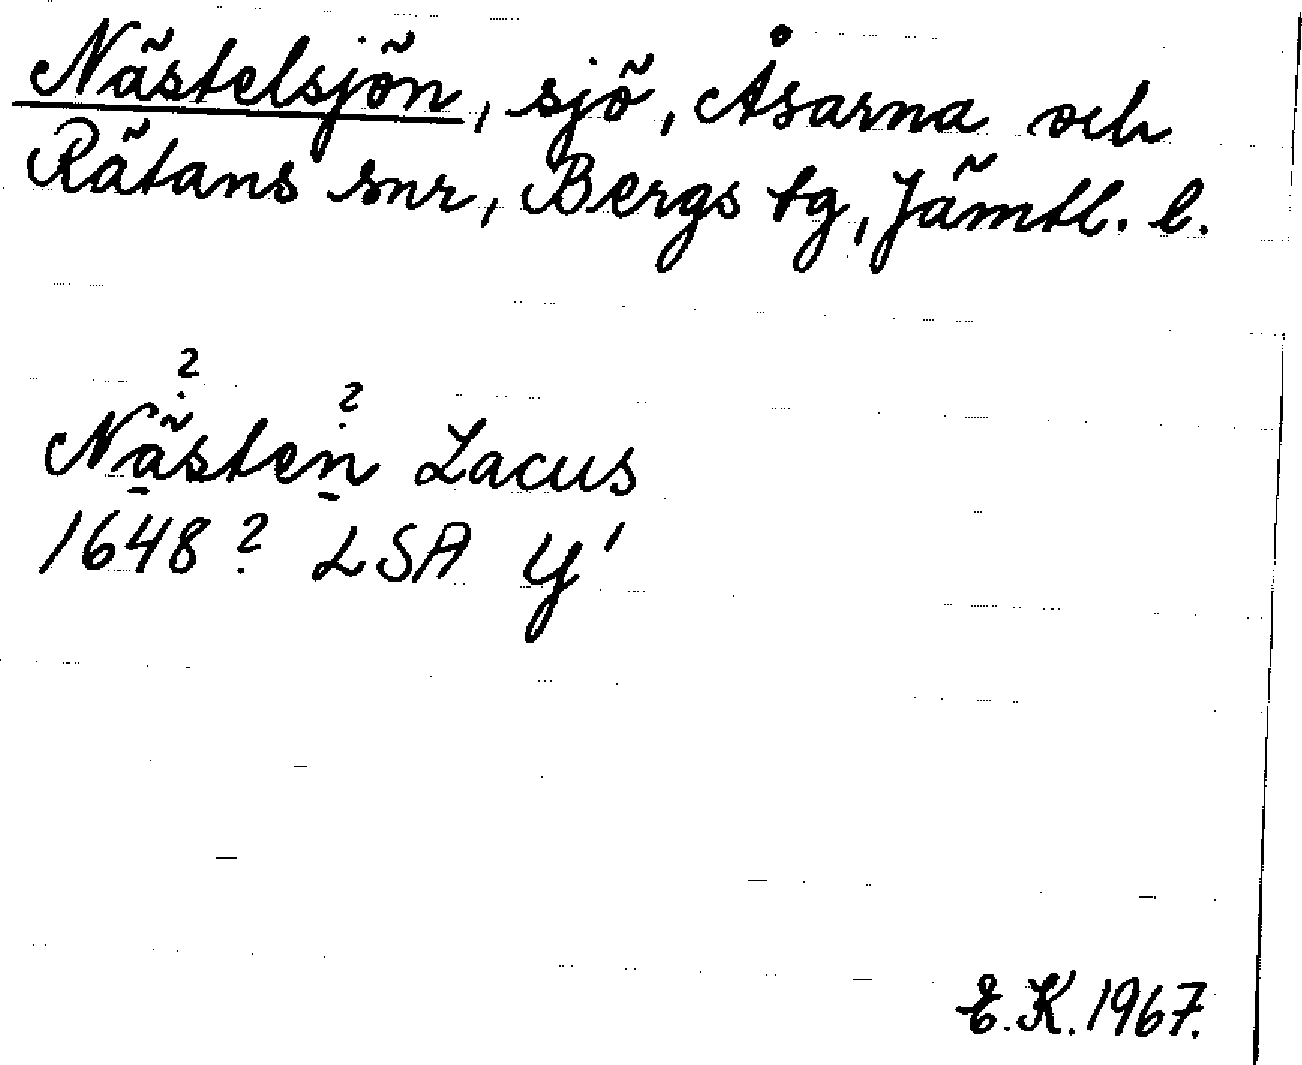 Nästelsjön, sjö, Åsarna och
Rätans snr, Bergs tg, Jämtl. l.
? ?
Nästen Lacus
1648? LSA Y'
E.K. 1967.